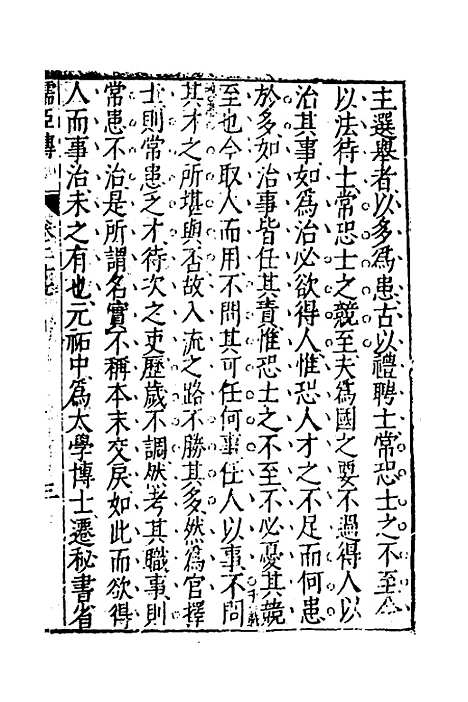 主選舉者以多爲患古以禮聘士常恐士之不至今
以法待士常恐士之競至夫爲國之要不過得人以
治其事如爲治必欲得人惟恐人才之不足而何患
於多如治事皆任其責惟恐士之不至不必憂其競
至也今取人而用不問其可任何事任人以事不問
其才之所堪與否故入流之路不勝其多然爲官擇
士則常患乏才待次之吏歷歲不調然考其職事則
常患不治是所謂名實不稱本末交戾如此而欲得
人而事治未之有也元祐中爲太學博士遷秘書省
儒臣傳